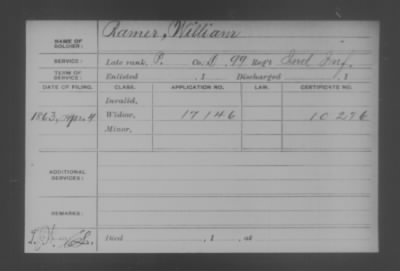 Ramer, William
NAME OF
SOLDIER:
SERVICE: Late rank, P. Co. D. 99 Reg't Ind Inf.
TERM OF
SERVICE: Enlisted , 1 Discharged , 1
DATE OF FILING. CLASS. APPLICATION NO. LAW. CERTIFICATE NO.
Invalid,
1863, Apr. 4 Widow, 17146 10276
Minor,
ADDITIONAL
SERVICES:
REMARKS:
Died , 1 , at